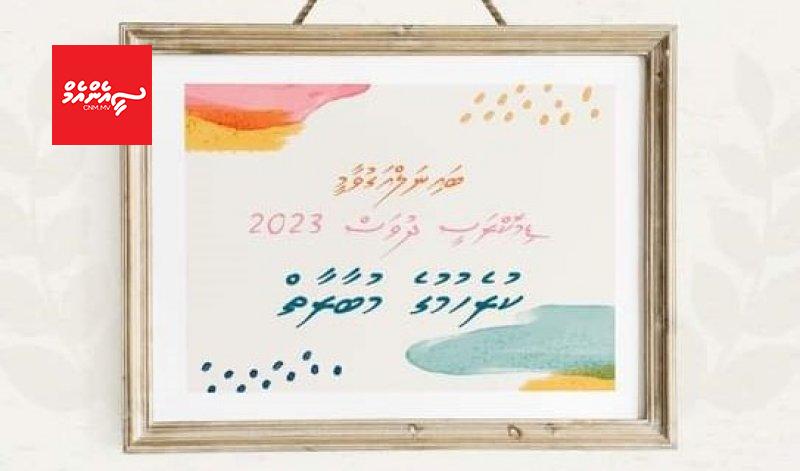 ސީއެންއެމް
CNM.MV
ބައިނަލްއަޤުވާމީ
ޑިމޮކްރަސީ ދުވަސް 2023
ކުރެހުމުގެ މުބާރާތް